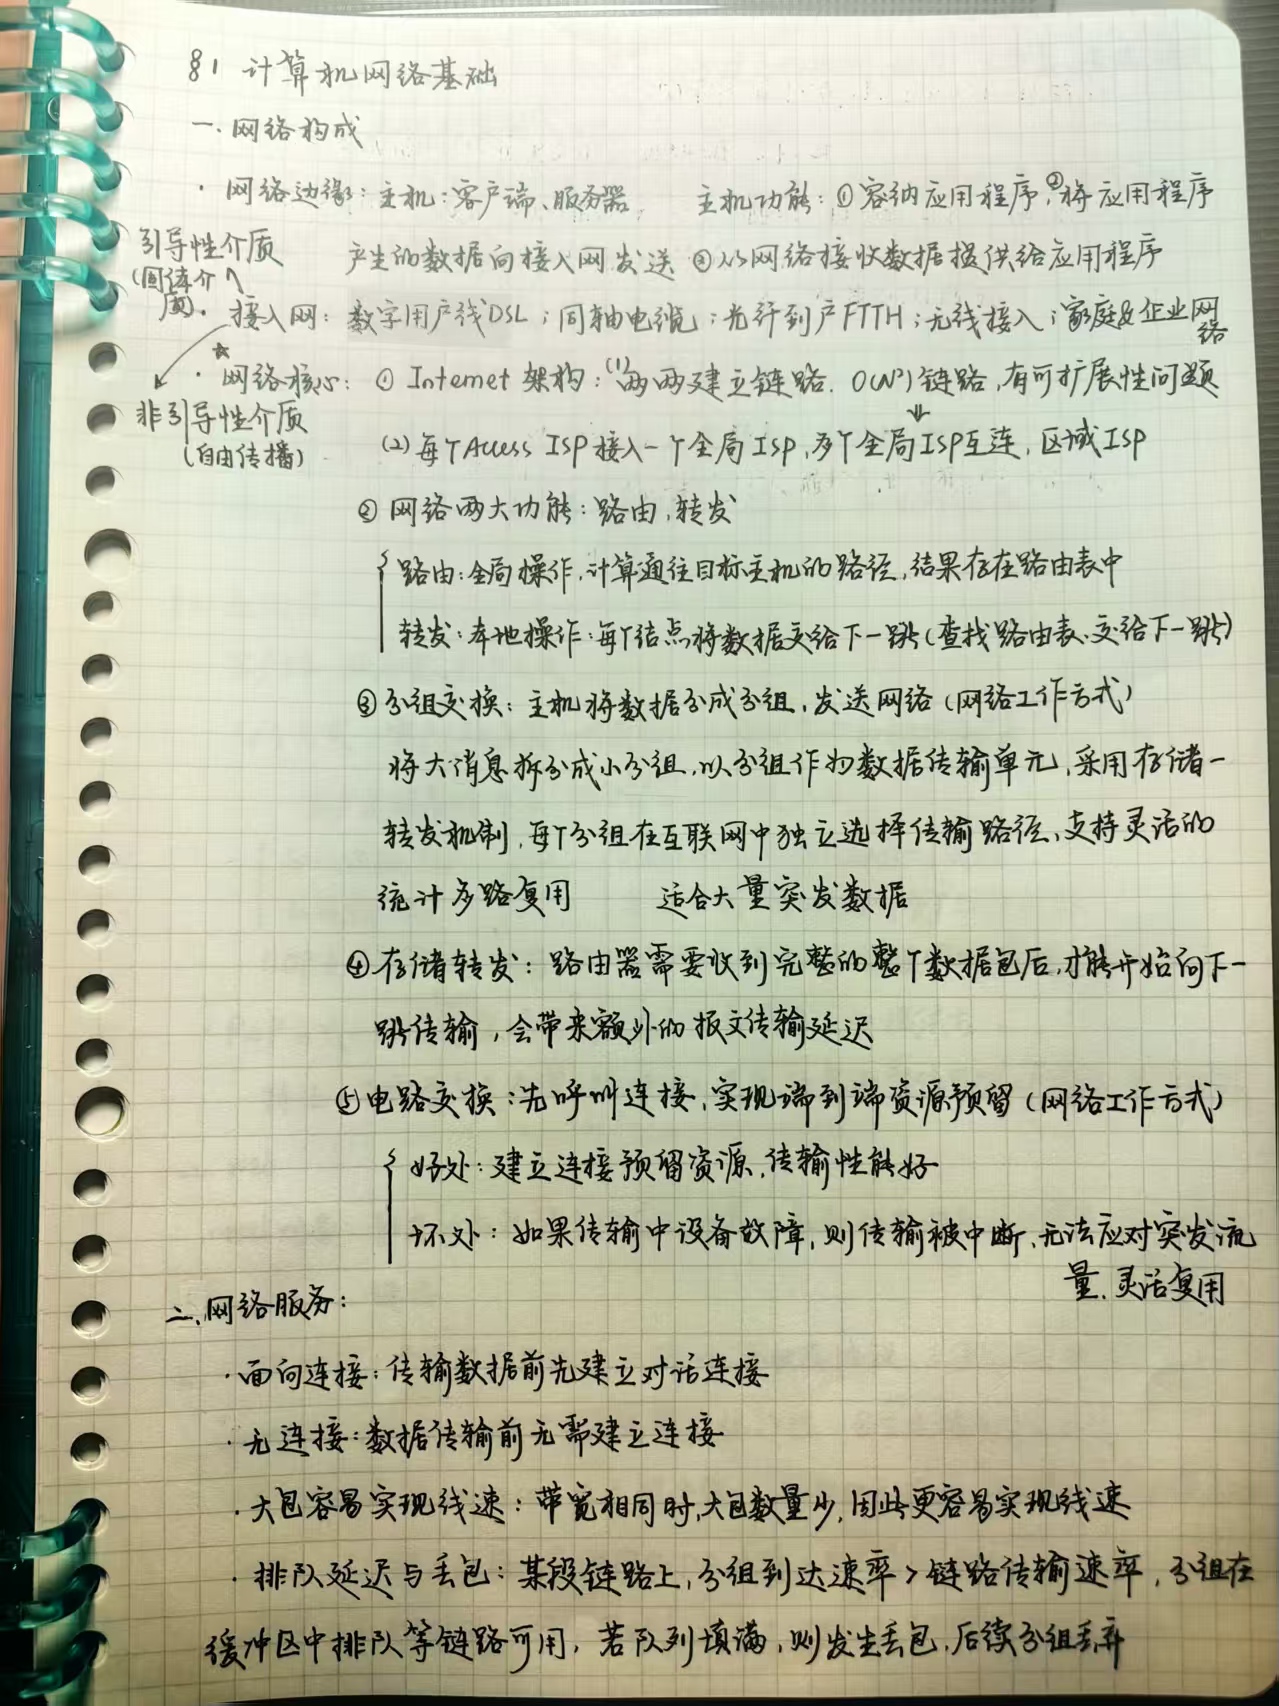 §1 计算机网络基础
一. 网络构成
· 网络边缘：主机：客户端、服务器 主机功能：①容纳应用程序，②将应用程序
产生的数据向接入网发送 ③从网络接收数据提供给应用程序
引导性介质
(固体介质)
· 接入网：数字用户线DSL；同轴电缆；光纤到户FTTH；无线接入；家庭&企业网络
☆· 网络核心：① Internet 架构：(1)两两建立链路. O(N²)链路，有可扩展性问题
⇓
非引导性介质
(自由传播)
(2)每个Access ISP接入一个全局ISP，多个全局ISP互连，区域ISP
② 网络两大功能：路由，转发
路由：全局操作，计算通往目标主机的路径，结果存在路由表中
转发：本地操作：每个结点将数据交给下一跳(查找路由表、交给下一跳)
③ 分组交换：主机将数据分成分组，发送网络(网络工作方式)
将大消息拆分成小分组，以分组作为数据传输单元，采用存储一
转发机制，每个分组在互联网中独立选择传输路径，支持灵活的
统计多路复用 适合大量突发数据
④ 存储转发：路由器需要收到完整的整个数据包后，才能开始向下一
跳传输，会带来额外的报文传输延迟
⑤ 电路交换：先呼叫连接，实现端到端资源预留(网络工作方式)
好处：建立连接预留资源，传输性能好
坏处：如果传输中设备故障，则传输被中断，无法应对突发流
量，灵活复用
二、网络服务：
· 面向连接：传输数据前先建立对话连接
· 无连接：数据传输前无需建立连接
· 大包容易实现线速：带宽相同时，大包数量少，因此更容易实现线速
· 排队延迟与丢包：某段链路上，分组到达速率>链路传输速率，分组在
缓冲区中排队等链路可用，若队列填满，则发生丢包，后续分组丢弃